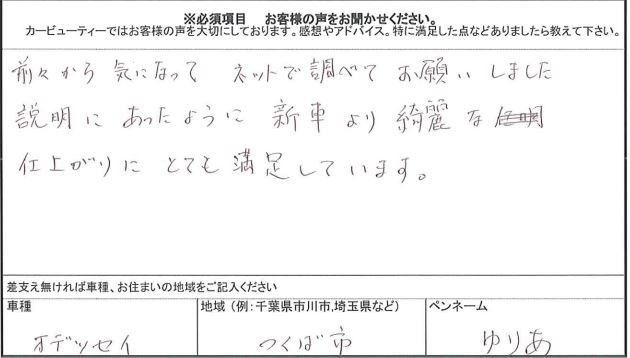 ※必須項目 お客様の声をお聞かせください。
カービューティーではお客様の声を大切にしております。感想やアドバイス。特に満足した点などありましたら教えて下さい。
前々から 気になって ネットで調べて お願いしました
説明に あったように 新車より 綺麗な
仕上がりに とても 満足しています。
差支え無ければ車種、お住まいの地域をご記入ください
車種 地域 (例:千葉県市川市,埼玉県など) ペンネーム
オデッセイ つくば市 ゆりあ